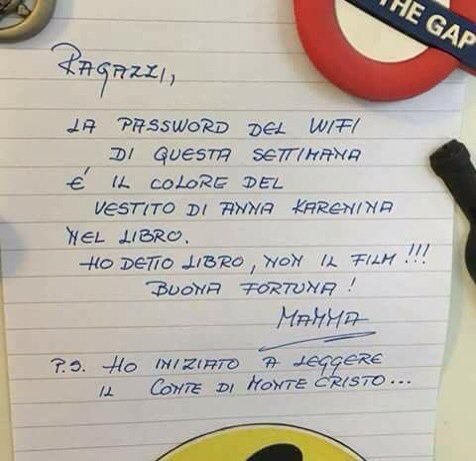 THE GAP
RAGAZZI,
LA PASSWORD DEL WIFI
DI QUESTA SETTIMANA
É IL COLORE DEL
VESTITO DI ANNA KARENINA
NEL LIBRO.
HO DETTO LIBRO, NON IL FILM!!!
BUONA FORTUNA!
MAMMA
P.S. HO INIZIATO A LEGGERE
IL CONTE DI MONTECRISTO...